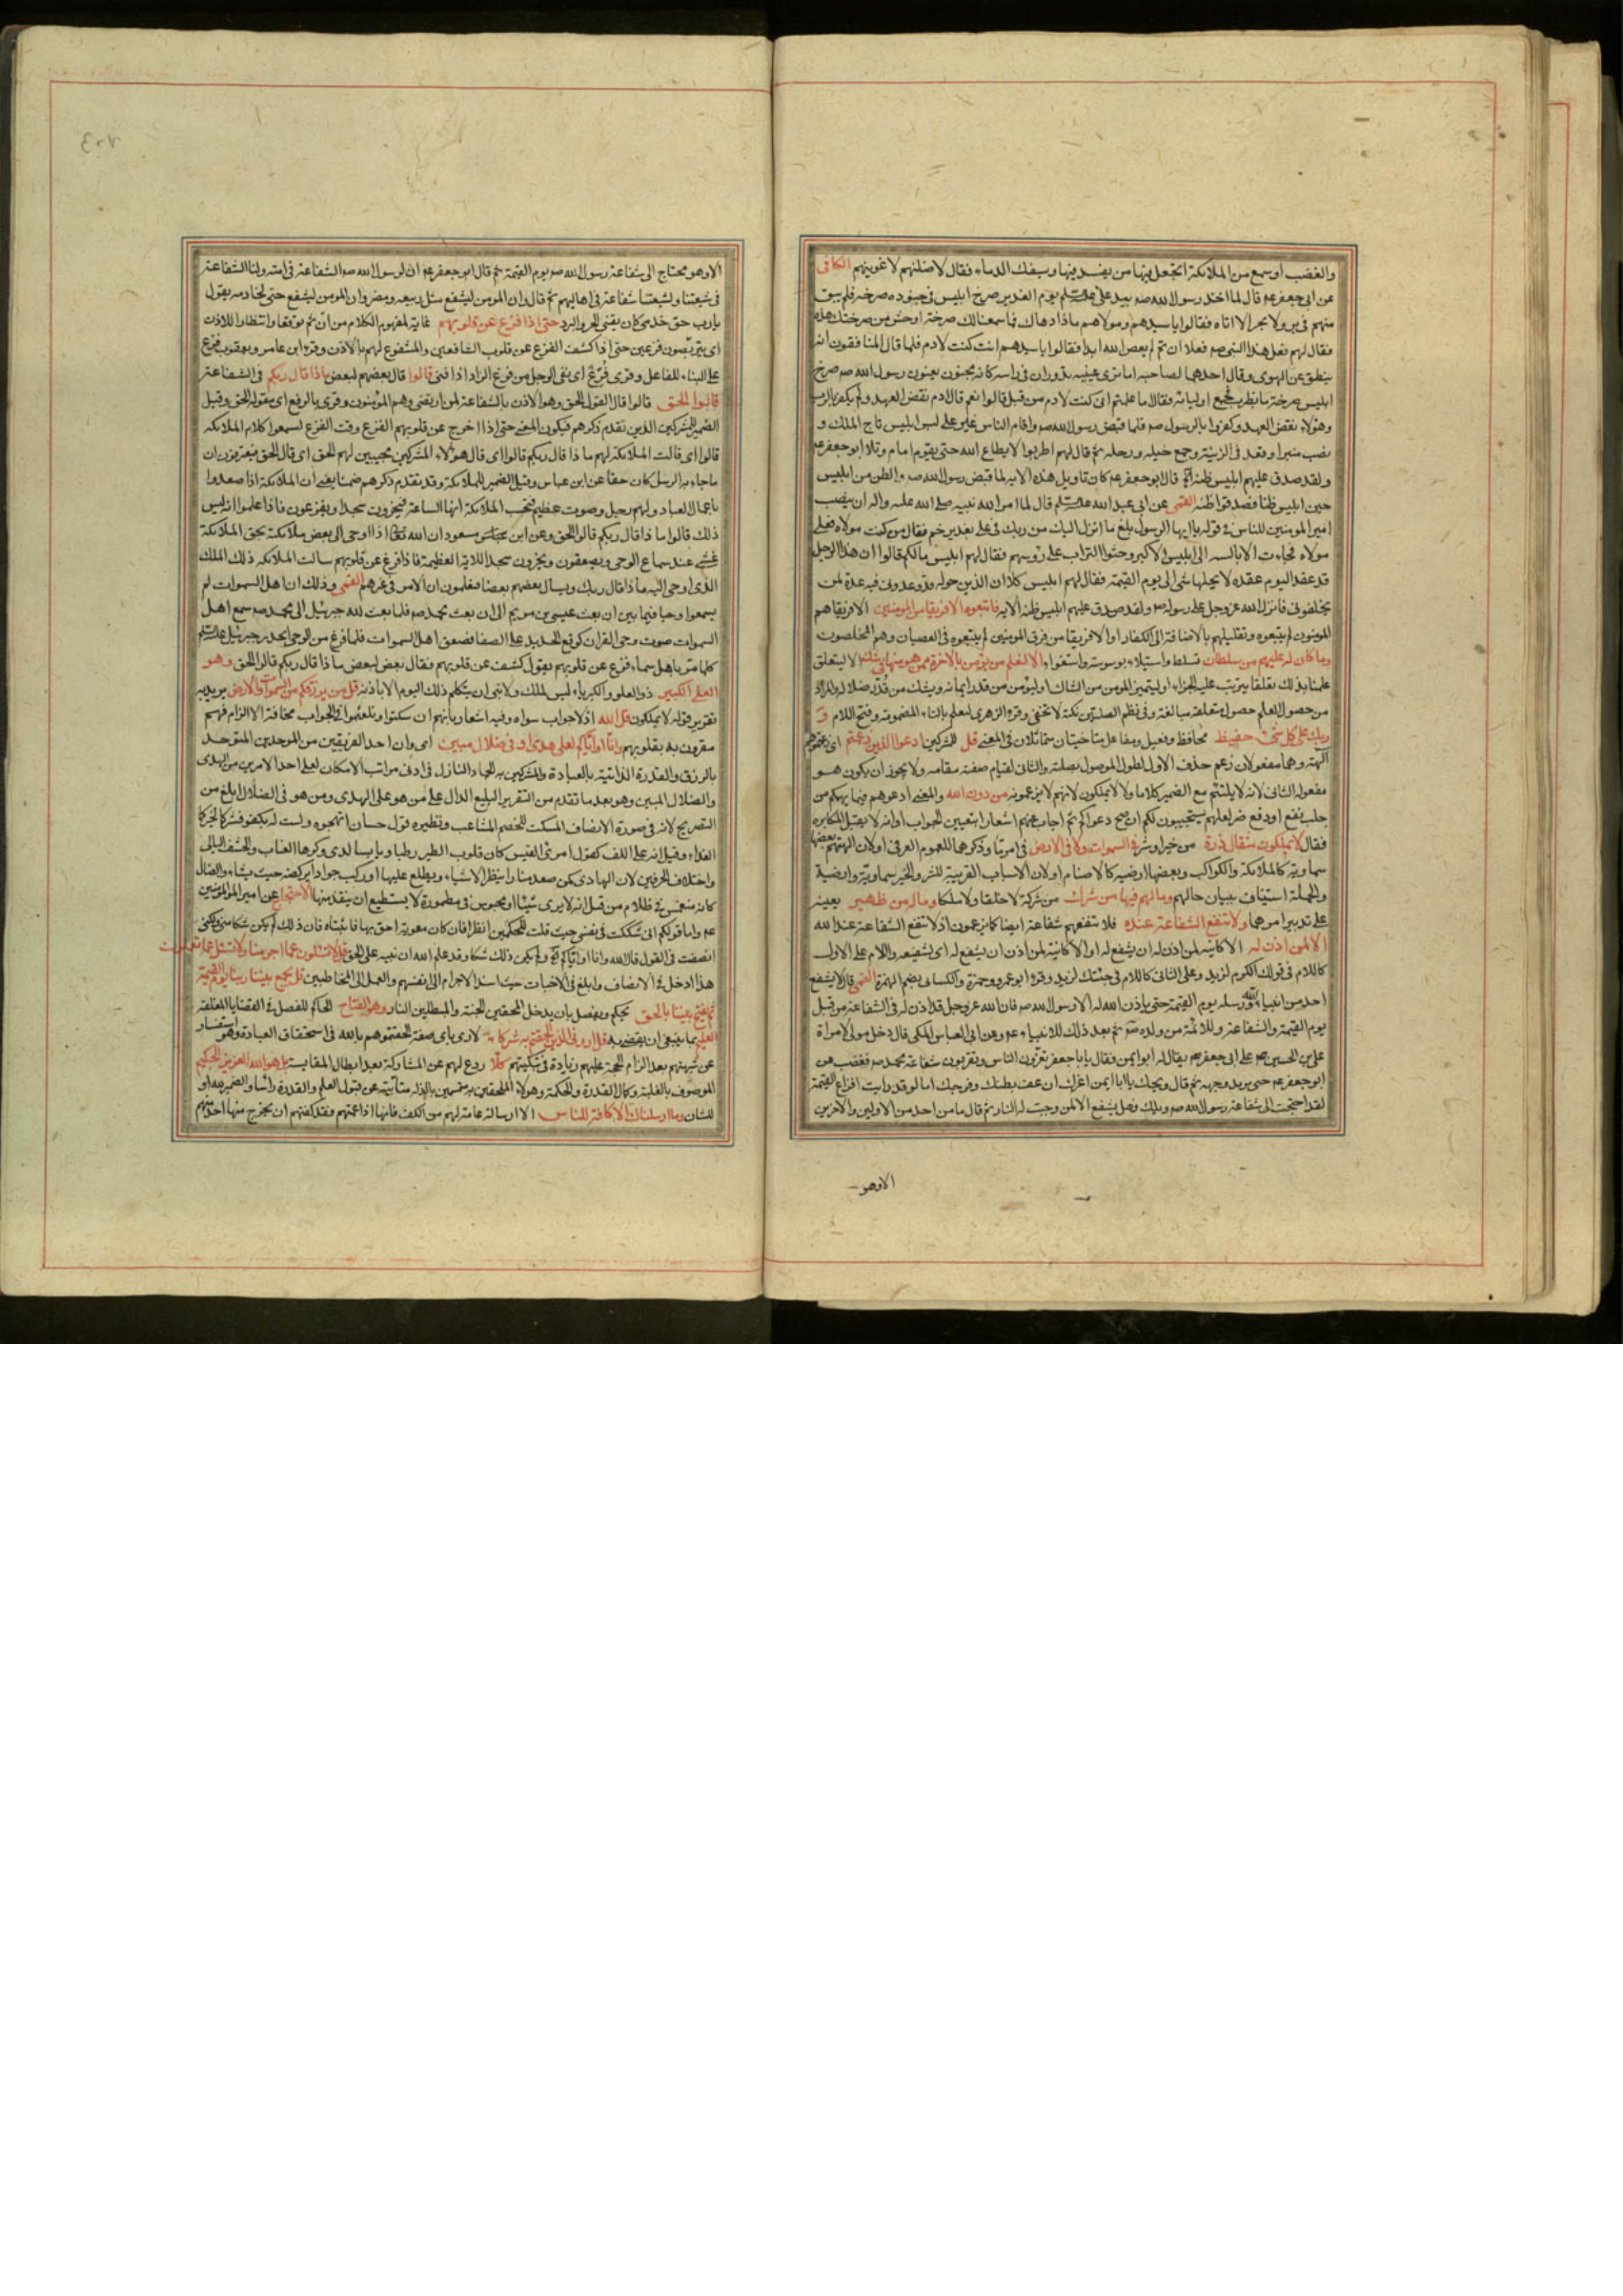 والغضب او سمع من الملائكة اتجعل فيها من يفسد فيها ويسفك الدماء فقال لاضلنهم لاغوينهم الكافى
عن ابى جعفر عم قال لما اخذ رسول الله صم بيد على علیه السلم يوم الغدير صرخ ابليس فى جنوده صرخة فلم يبق
منهم فى بر ولا بحر الا اتاه فقالوا يا سيدهم ومولاهم ماذا دهاك فما سمعنا لك صرخة اوحش من صرختك هذه
فقال لهم فعل هذا النبى صم فعلا ان تم لم يعص الله ابدا فقالوا يا سيدهم انت كنت لادم فلما قال المنافقون انه
ينطق عن الهوى وقال احدهما لصاحبه اما ترى عينيه تدوران فى راسه كانه مجنون يعنون رسول الله صم صرخ
ابليس صرخة بطرب فجمع اوليائه فقال اما علمتم انى كنت لادم من قبل قالوا نعم قال ادم نقض العهد ولم يكفر بالرب
وهؤلاء نقضوا العهد وكفروا بالرسول صم فلما قبض رسول الله صم واقام الناس غير على لبس ابليس تاج الملك و
نصب منبرا وقعد فى الزينة وجمع خيله ورجله ثم قال لهم اطربوا لا يطاع الله حتى يقوم امام وتلا ابو جعفر عم
ولقد صدق عليهم ابليس ظنه الآية قال ابو جعفر عم كان تاويل هذه الاية لما قبض رسول الله صم والظن من ابليس
حين ظنا فصدقوا ظنه القمى عن ابى عبد الله علیه السلم قال لما امر الله نبيه صلى الله عليه واله ان ينصب
امير المومنين للناس فى قوله يا ايها الرسول بلغ ما انزل اليك من ربك فى على بغدير خم فقال من كنت مولاه فعلى
مولاه فجاءت الابالسه الى ابليس الاكبر وحثوا التراب على رؤسهم فقال لهم ابليس ما لكم قالوا ان هذا الرجل
قد عقد اليوم عقده لا يحلها شئ الى يوم القيمة فقال لهم ابليس كلا ان الذين حوله قد وعدونى فيه عدة لن
يخلفونى فانزل الله عز وجل على رسوله صم ولقد صدق عليهم ابليس ظنه الاية فاتبعوه الا فريقا من المومنين الا فريقا هم
المومنون لم يتبعوه وتقليلهم بالاضافة الى الكفار او الا فريقا من فرق المومنين لم يتبعوه فى العصيان وهم المخلصون
وما كان له عليهم من سلطان تسلط واستيلاء بوسوسة واستغواء الا لنعلم من يؤمن بالاخرة ممن هو منها فى شك الا ليتعلق
علمنا بذلك تعلقا يترتب عليه الجزاء او ليتميز المومن من الشاك او ليؤمن من قدر ايمانه ويشك من قدر ضلاله والمراد
من حصول العلم حصول متعلقه مبالغة وفى نظم الصلتين نكتة لا تخفى وقرء الزهرى ليعلم بالياء المضمومة وفتح اللام و
ربك على كل شئ حفيظ محافظ وفعيل ومفاعل متاخيتان متماثلان فى المعنى قل للمشركين ادعوا الذين زعمتم اى زعمتموهم
آلهة وهما مفعولان زعم حذف الاول لطول الموصول بصلته والثانى لقيام صفته مقامه ولا يجوز ان يكون هو
مفعوله الثانى لانه لا يلتئم مع الضمير كلاما ولا لا يملكون لانهم لا يزعمونه من دون الله والمعنى ادعوهم فيما يهمكم من
جلب نفع او دفع ضر لعلهم يستجيبون لكم ان صح دعواكم ثم اجاب عنهم اشعارا بتعيين الجواب وانه لا يقبل المكابرة
فقال لا يملكون مثقال ذرة من خير او شر فى السموات ولا فى الارض فى امر ما وذكرهما للعموم العرفى او لان الهتهم بعضها
سماوية كالملائكة والكواكب وبعضها ارضيه كالاصنام او لان الاسباب القريبة للشر والخير سماوية وارضية
والجملة استيناف ببيان حالهم وما لهم فيها من شرك من شركة لا خلقا ولا ملكا وما له منهم من ظهير يعينه
على تدبير امرهما ولا تنفع الشفاعة عنده فلا تنفعهم شفاعة ايضا كما يزعمون اذ لا تنفع الشفاعة عند الله
الا لمن اذن له الا كائنه لمن اذن له ان يشفع له او الا كائنة لمن اذن ان يشفع له اى لشفيعه واللام على الاول
كاللام فى قولك الكرم لزيد وعلى الثانى كاللام فى جئتك لزيد وقرء ابو عمرو وحمزة والكسائى بضم الهمزة القمى قال لا يشفع
احد من انبياء الله ورسله يوم القيمة حتى ياذن الله له الا رسول الله صم فان الله عز وجل قد اذن له فى الشفاعة من قبل
يوم القيمة والشفاعة وللائمة من ولده ثم بعد ذلك للانبياء عم وعن ابى العباس المكى قال دخل مولى لامراة
على بن الحسين عم على ابى جعفر عم يقال له ابو ايمن فقال يا با جعفر تغرون الناس وتقولون شفاعة محمد صم فغضب
ابو جعفر عم حتى تربد وجهه ثم قال ويحك يا ابا ايمن اغرك ان عف بطنك وفرجك اما لو قد رايت افزاع القيمة
لقد احتجت الى شفاعة رسول الله صم ويلك وهل يشفع الا لمن وجبت له النار ثم قال ما من احد من الاولين والاخرين
الا وهو
الا وهو محتاج الى شفاعة رسول الله صم يوم القيمة ثم قال ابو جعفر عم ان لرسول الله صم الشفاعة فى امته ولنا الشفاعة
فى شيعتنا ولشيعتنا شفاعة فى اهاليهم ثم قال وان المومن ليشفع مثل ربيعه ومضر وان المومن ليشفع حتى لخادمه يقول
يا رب حق خدمتى كان يقينى الحر والبرد حتى اذا فزع عن قلوبهم غاية لمفهوم الكلام من ان ثم توقفا وانتظارا للاذن
اى يتربصون فزعين حتى اذا كشف الفزع عن قلوب الشافعين والمشفوع لهم بالاذن وقرء ابن عامر ويعقوب فزع
على البناء للفاعل وقرى فرغ اى نفى الوجل من فرغ الزاد اذا فنى قالوا قال بعضهم لبعض ماذا قال ربكم فى الشفاعة
قالوا الحق قالوا قال القول الحق وهو الاذن بالشفاعة لمن ارتضى وهم المؤمنون وقرى بالرفع اى مقوله الحق وقيل
الضمير للمشركين الذين تقدم ذكرهم فيكون المعنى حتى اذا اخرج عن قلوبهم الفزع وقت الفزع لسمعوا كلام الملائكة
قالوا اى قالت الملائكة لهم ماذا قال ربكم قالوا اى قال هؤلاء المشركين مجيبين لهم الحق اى قال الحق فيعترفون ان
ما جاء به الرسل كان حقا عن ابن عباس وقيل الضمير للملائكة وقد تقدم ذكرهم ضمنا يعنى ان الملائكة اذا صعدوا
باعمال العباد ولهم زجل وصوت عظيم فتحسب الملائكة انها الساعة فيخرون سجدا ويفزعون فاذا علموا انه ليس
ذلك قالوا ماذا قال ربكم قالوا الحق وعن ابن مسعود ان الله تعالى اذا اوحى الى بعض ملائكة يحق الملائكة
غشى عند سماع الوحى ويصعقون ويخرون سجدا للاية العظيمة فاذا فزع عن قلوبهم سالت الملائكة ذلك الملك
الذى اوحى اليه ماذا قال ربك ويسال بعضهم بعضا فيعلمون ان الامر فى غيرهم القمى وذلك ان اهل السموات لم
يسمعوا وحيا فيما بين ان بعث عيسى بن مريم الى ان بعث محمد صم فلما بعث الله جبرئيل الى محمد صم سمع اهل
السموات صوت وحى القران كوقع الحديد على الصفا فصعق اهل السموات فلما فرغ من الوحى انحدر جبرئيل علیه السلم
كلما مر باهل سماء فزع عن قلوبهم يقول كشف عن قلوبهم فقال بعض لبعض ماذا قال ربكم قالوا الحق وهو
العلى الكبير ذو العلو والكبرياء ليس لملك ولا نبى ان يتكلم ذلك اليوم الا باذنه قل من يرزقكم من السموات والارض يريد به
تقرير قوله لا يملكون قل الله اذ لا جواب سواه وفيه اشعار بانهم ان سكتوا وتلعثموا فى الجواب مخافة الالزام فهم
مقرون به بقلوبهم وانا او اياكم لعلى هدى او فى ضلال مبين اى وان احد الفريقين من الموحدين المتوحد
بالرزق والقدرة الذاتية بالعبادة والمشركين به الجماد النازل فى ادنى مراتب الامكان لعلى احد الامرين من الهدى
والضلال المبين وهو بعد ما تقدم من التقرير البليغ الدال على من هو على الهدى ومن هو فى الضلال ابلغ من
التصريح لانه فى صورة الانصاف المسكت للخصم المشاغب ونظيره قول حسان اتهجوه ولست له بكفو فشركما لخيركما
الفداء وقيل انه على اللف كقول امرئ القيس كان قلوب الطير رطبا ويابسا لدى وكرها العناب والحشف البالى
واختلاف الحرفين لان الهادى كمن صعد منارا ينظر الاشياء ويطلع عليها او ركب جوادا يركضه حيث يشاء والضال
كانه منغمس فى ظلام من قبل انه لا يرى شيئا او محبوس فى مطمورة لا يستطيع ان ينقد منها الاحتجاج عن امير المؤمنين
عم واما قولكم انى شككت فى نفسى حيث قلت للحكمين انظرا فان كان معوية احق بها فاثبتاه فان ذلك لم يكن شكا منى ولكنى
انصفت فى القول قال الله وانا او اياكم الآية ولم يكن ذلك شكا وقد علم الله ان نبيه على الحق قل لا تسئلون عما اجرمنا ولا نسئل عما تعملون
هذا ادخل فى الانصاف وابلغ فى الاخبات حيث اسند الاجرام الى انفسهم والعمل الى المخاطبين قل يجمع بيننا ربنا يوم القيمة
ثم يفتح بيننا بالحق يحكم ويفصل بان يدخل المحقين الجنة والمبطلين النار وهو الفتاح الحاكم للفصل فى القضايا المغلقة
العليم بما ينبغى ان يقضى به قل ارونى الذين الحقتم به شركاء لارى باى صفة الحقتموهم بالله فى استحقاق العبادة وهو استفسار
عن شبهتهم بعد الزام الحجة عليهم زيادة فى تبكيتهم كلا ردع لهم عن المشاركة بعد ابطال المقايسة بل هو الله العزيز الحكيم
الموصوف بالغلبة وكمال القدرة والحكمة وهؤلاء الملحقين به متسمين بالذلة متابية عن قبول العلم والقدرة راسا والضمير لله او
للشان وما ارسلناك الا كافة للناس الا ارسالة عامة لهم من الكف فانها اذا عمتهم فقد كفتهم ان يخرج منها احد منهم